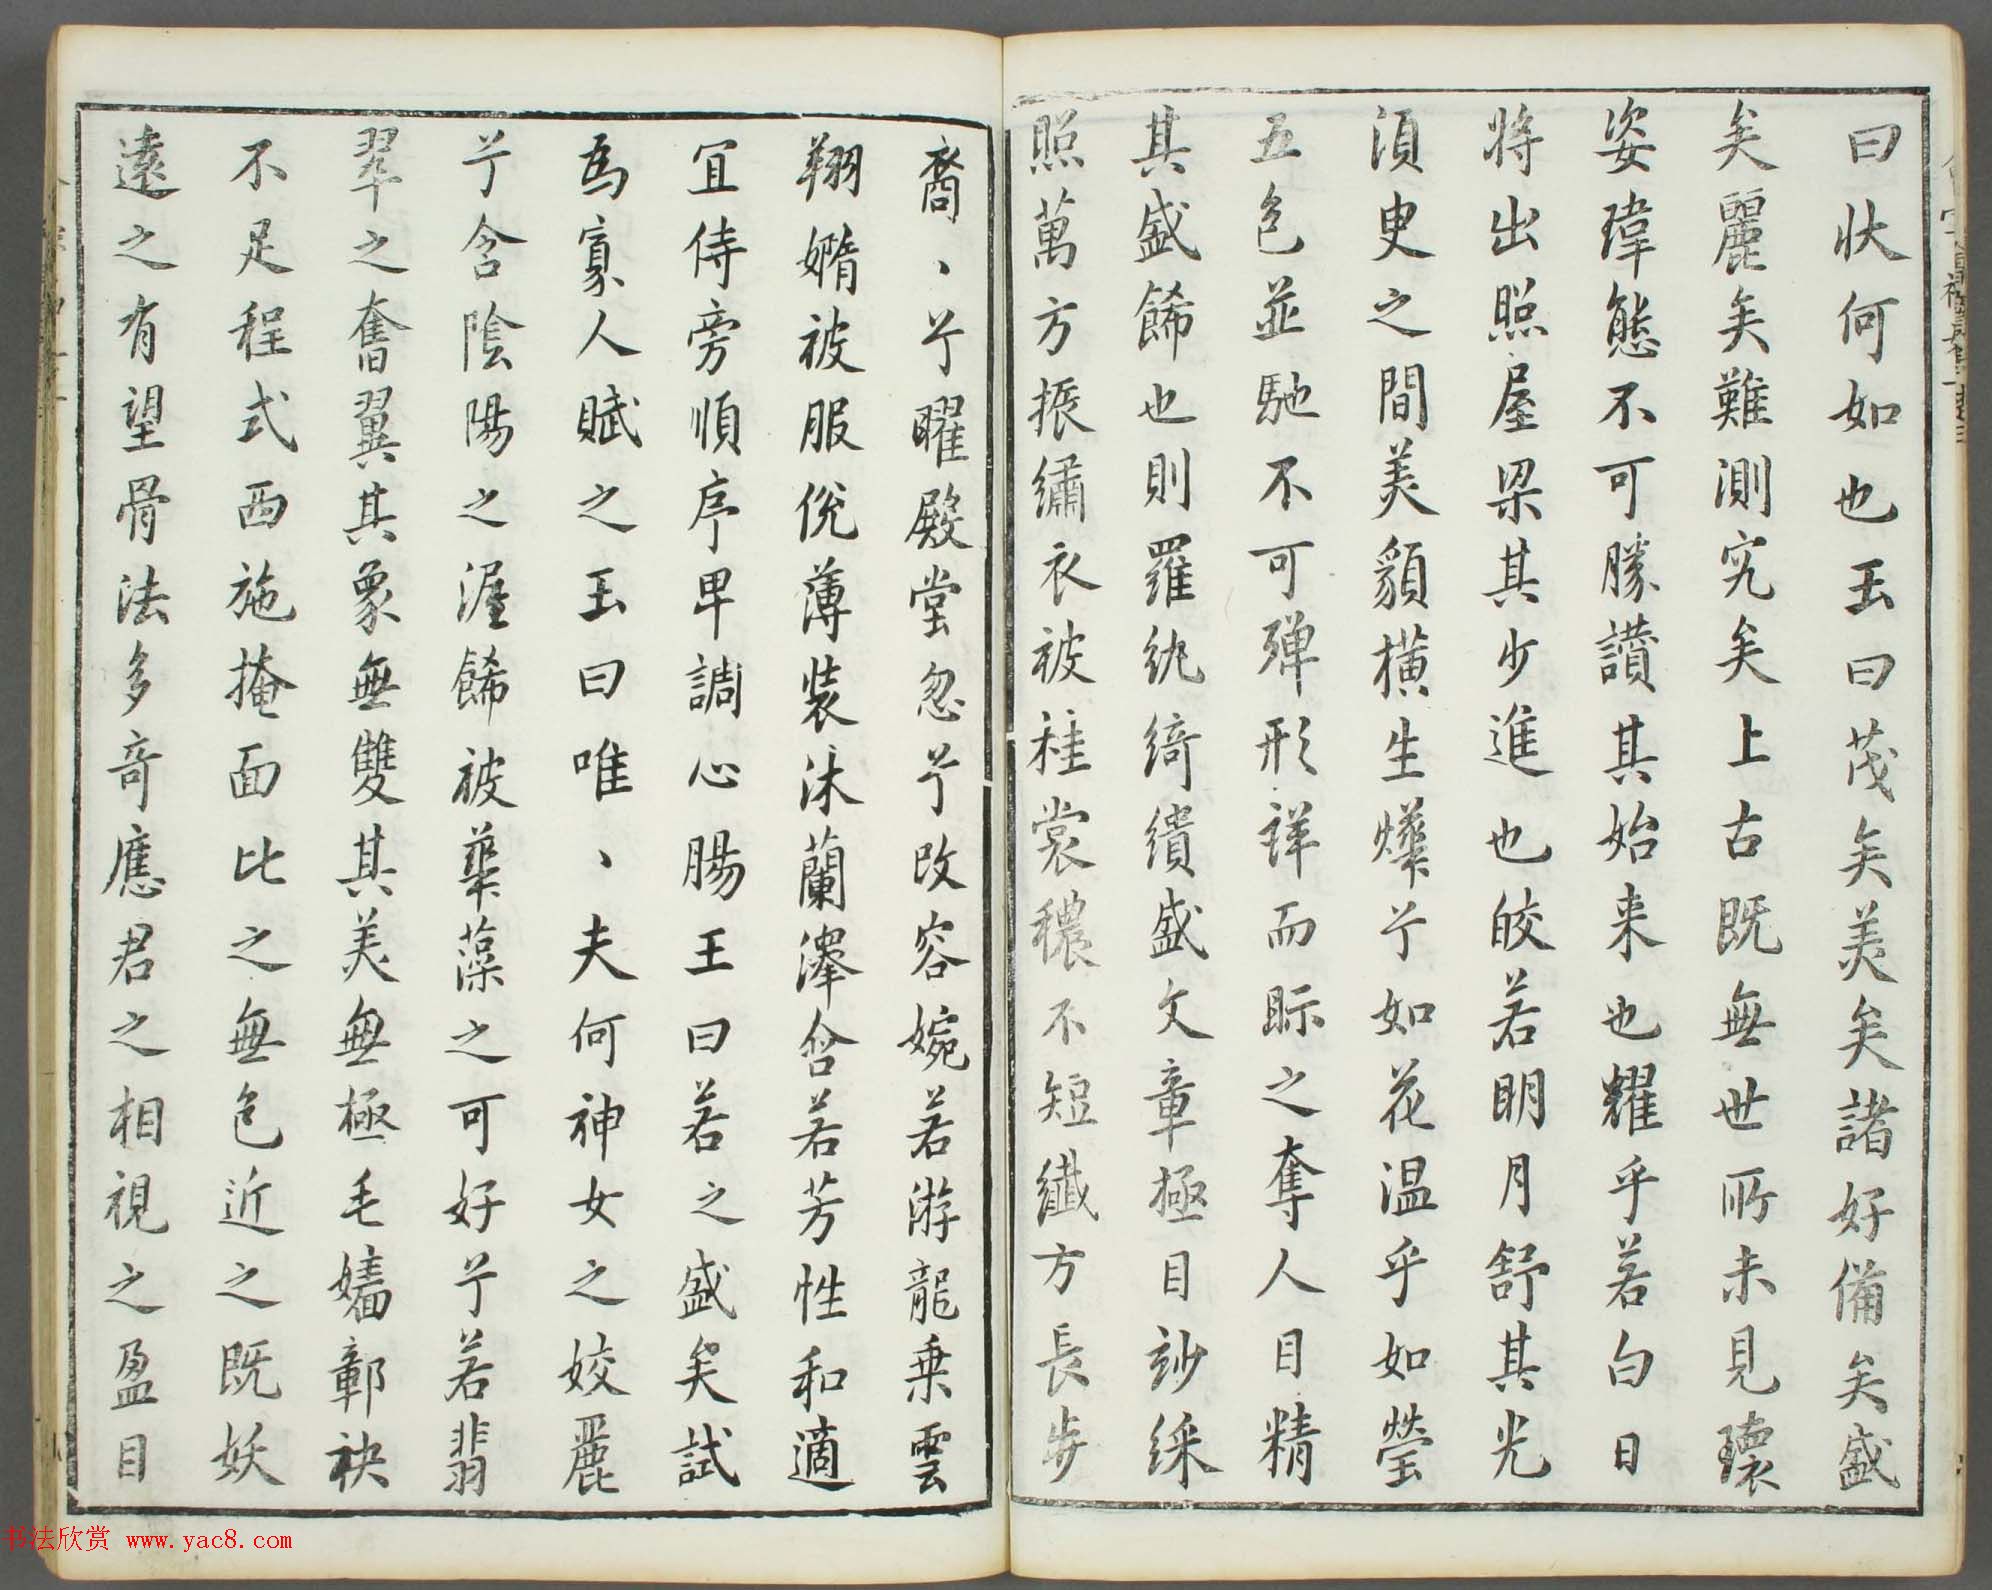 曰状何如也玉曰茂矣美矣諸好備矣盛
矣麗矣難測究矣上古既無世所未見瓌
姿瑋態不可勝讃其始来也耀乎若白日
将出照屋梁其少進也皎若明月舒其光
須臾之間美貌橫生爗兮如花温乎如瑩
五色並馳不可殫形詳而眎之奪人目精
其盛餙也則羅紈綺繢盛文章極目玅綵
照萬方振繡衣被袿裳穠不短纖方長步
裔丶兮曜殿堂忽兮改容婉若游龍乗雲
翔嫷被服侻薄装沐蘭澤含若芳性和適
宜侍旁順序卑調心腸王曰若之盛矣試
為寡人賦之玉曰唯丶夫何神女之姣麗
兮含陰陽之渥餙被華藻之可好兮若翡
翠之奮翼其象無雙其美無極毛嬙鄣袂
不足程式西施掩面比之無色近之既妖
遠之有望骨法多奇應君之相視之盈目
书法欣赏 www.yac8.com